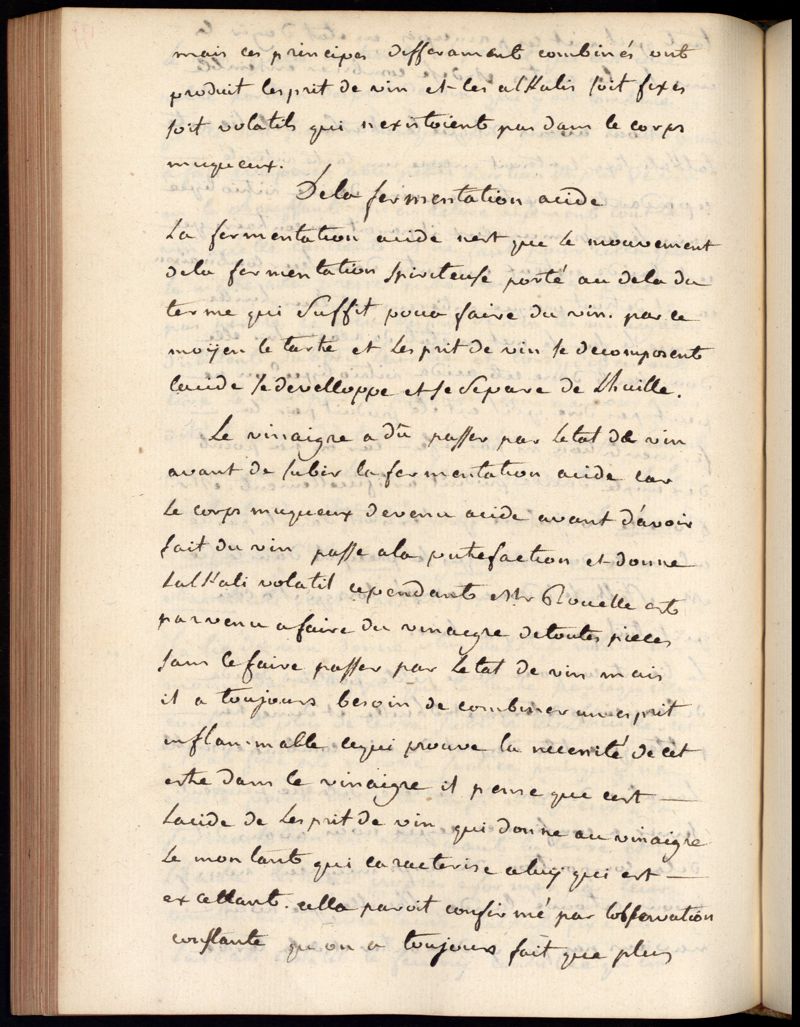 mais ces principes differament combinés ont
produit lesprit de vin et les alkalis soit fixes
soit volatils qui nexistoient pas dans le corps
muqueux.
De la fermentation acide
La fermentation acide nest que le mouvement
dela fermentation spiriteuse porté au dela du
terme qui suffit pour faire du vin. par ce
moÿen le tartre et Lesprit de vin se decomposent
lacide se develloppe et se separe de Lhuille.
Le vinaigre a dû passer par letat de vin
avant de subir la fermentation acide car
Le corps muqueux devenu acide avant d'avoir
fait du vin passe ala putrefaction et donne
Lalkali volatil cependant Mr Rouelle est
parvenu a faire du vinaigre detoutes pieces
sans le faire passer par Letat de vin mais
il a toujours besoin de combiner un esprit
inflammable cequi prouve la necesité de cet
estre dans le vinaigre il pense que cest
Lacide de Lesprit de vin qui donne au vinaigre
Le montant qui caracterise celuy qui est
excellant. cella paroit confirmé par lobservation
constante qu'on a toujours fait que plus